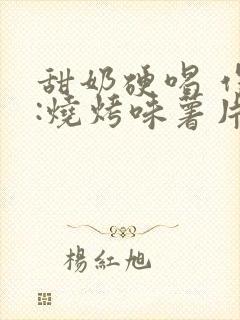 甜奶硬唱
:燒烤味薯片
楊紅旭